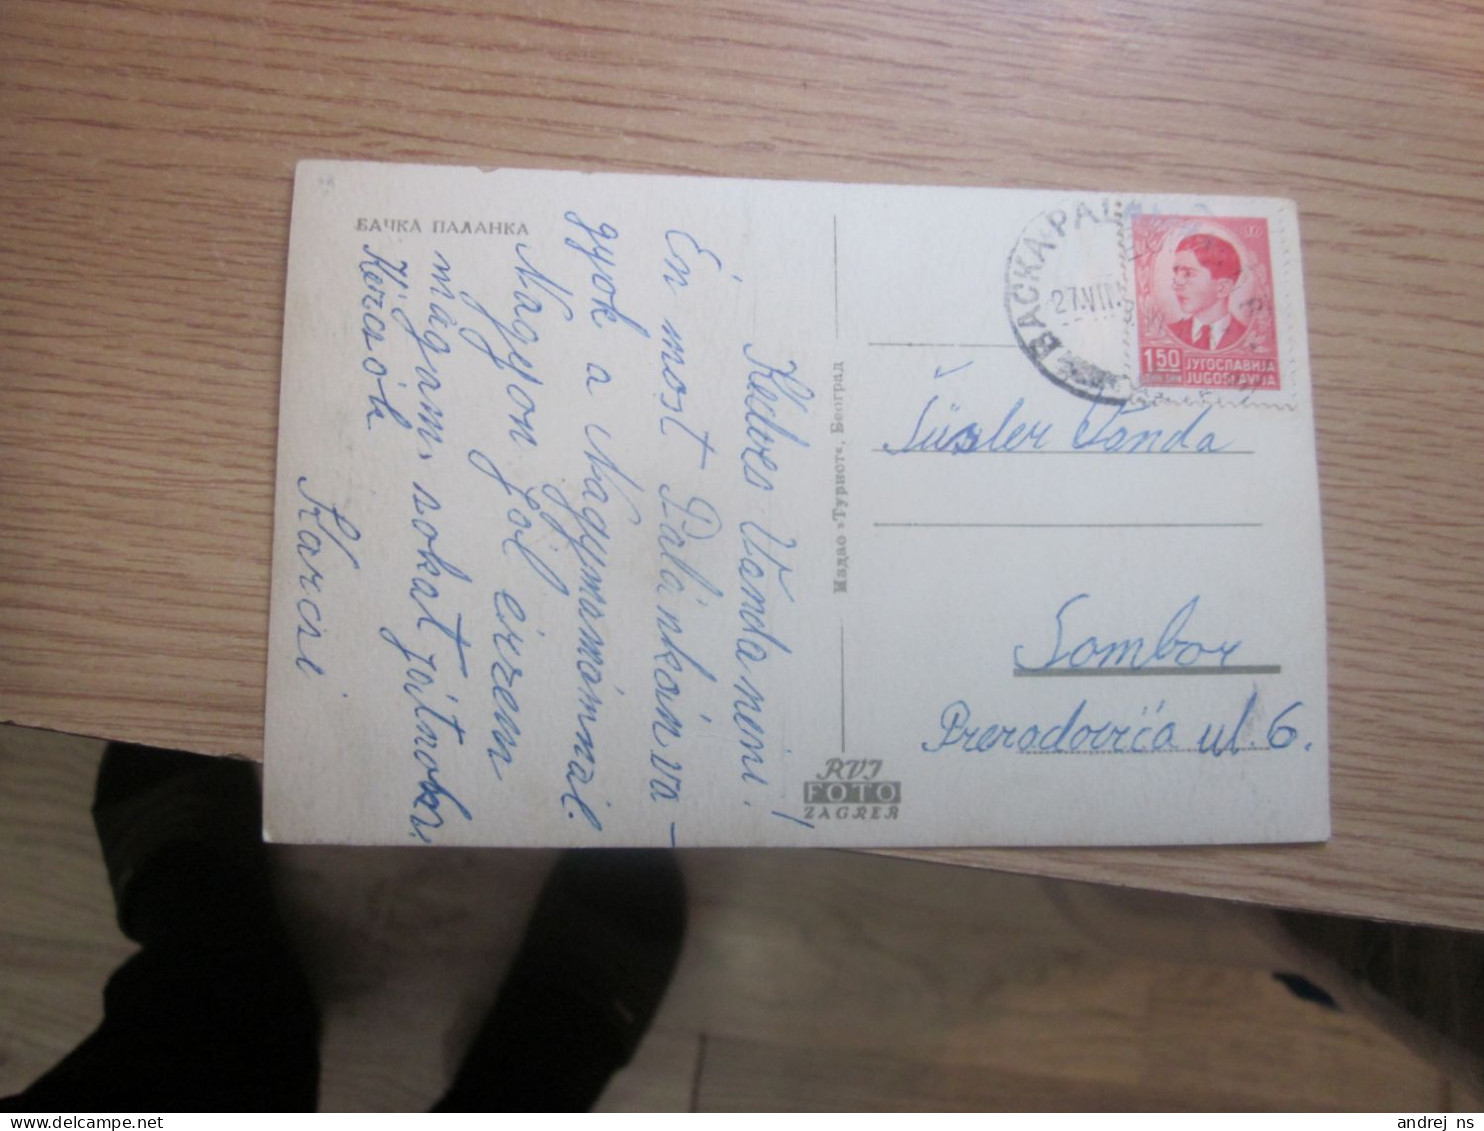 БАЧКА ПАЛАНКА
Kedves Vanda neni!
Én most Palánkán va-
gyok a Nagymamámnál.
Nagyon jól érzem
magam, sokat játszok.
Karcsi
Издао »Турист«, Београд
RVI
FOTO
ZAGREB
BAČKA PALANKA
27.VII
1.50
ЈУГОСЛАВИЈА
JUGOSLAVIJA
Vanda
Sombor
Prerodovića ul. 6.
andrej_ns